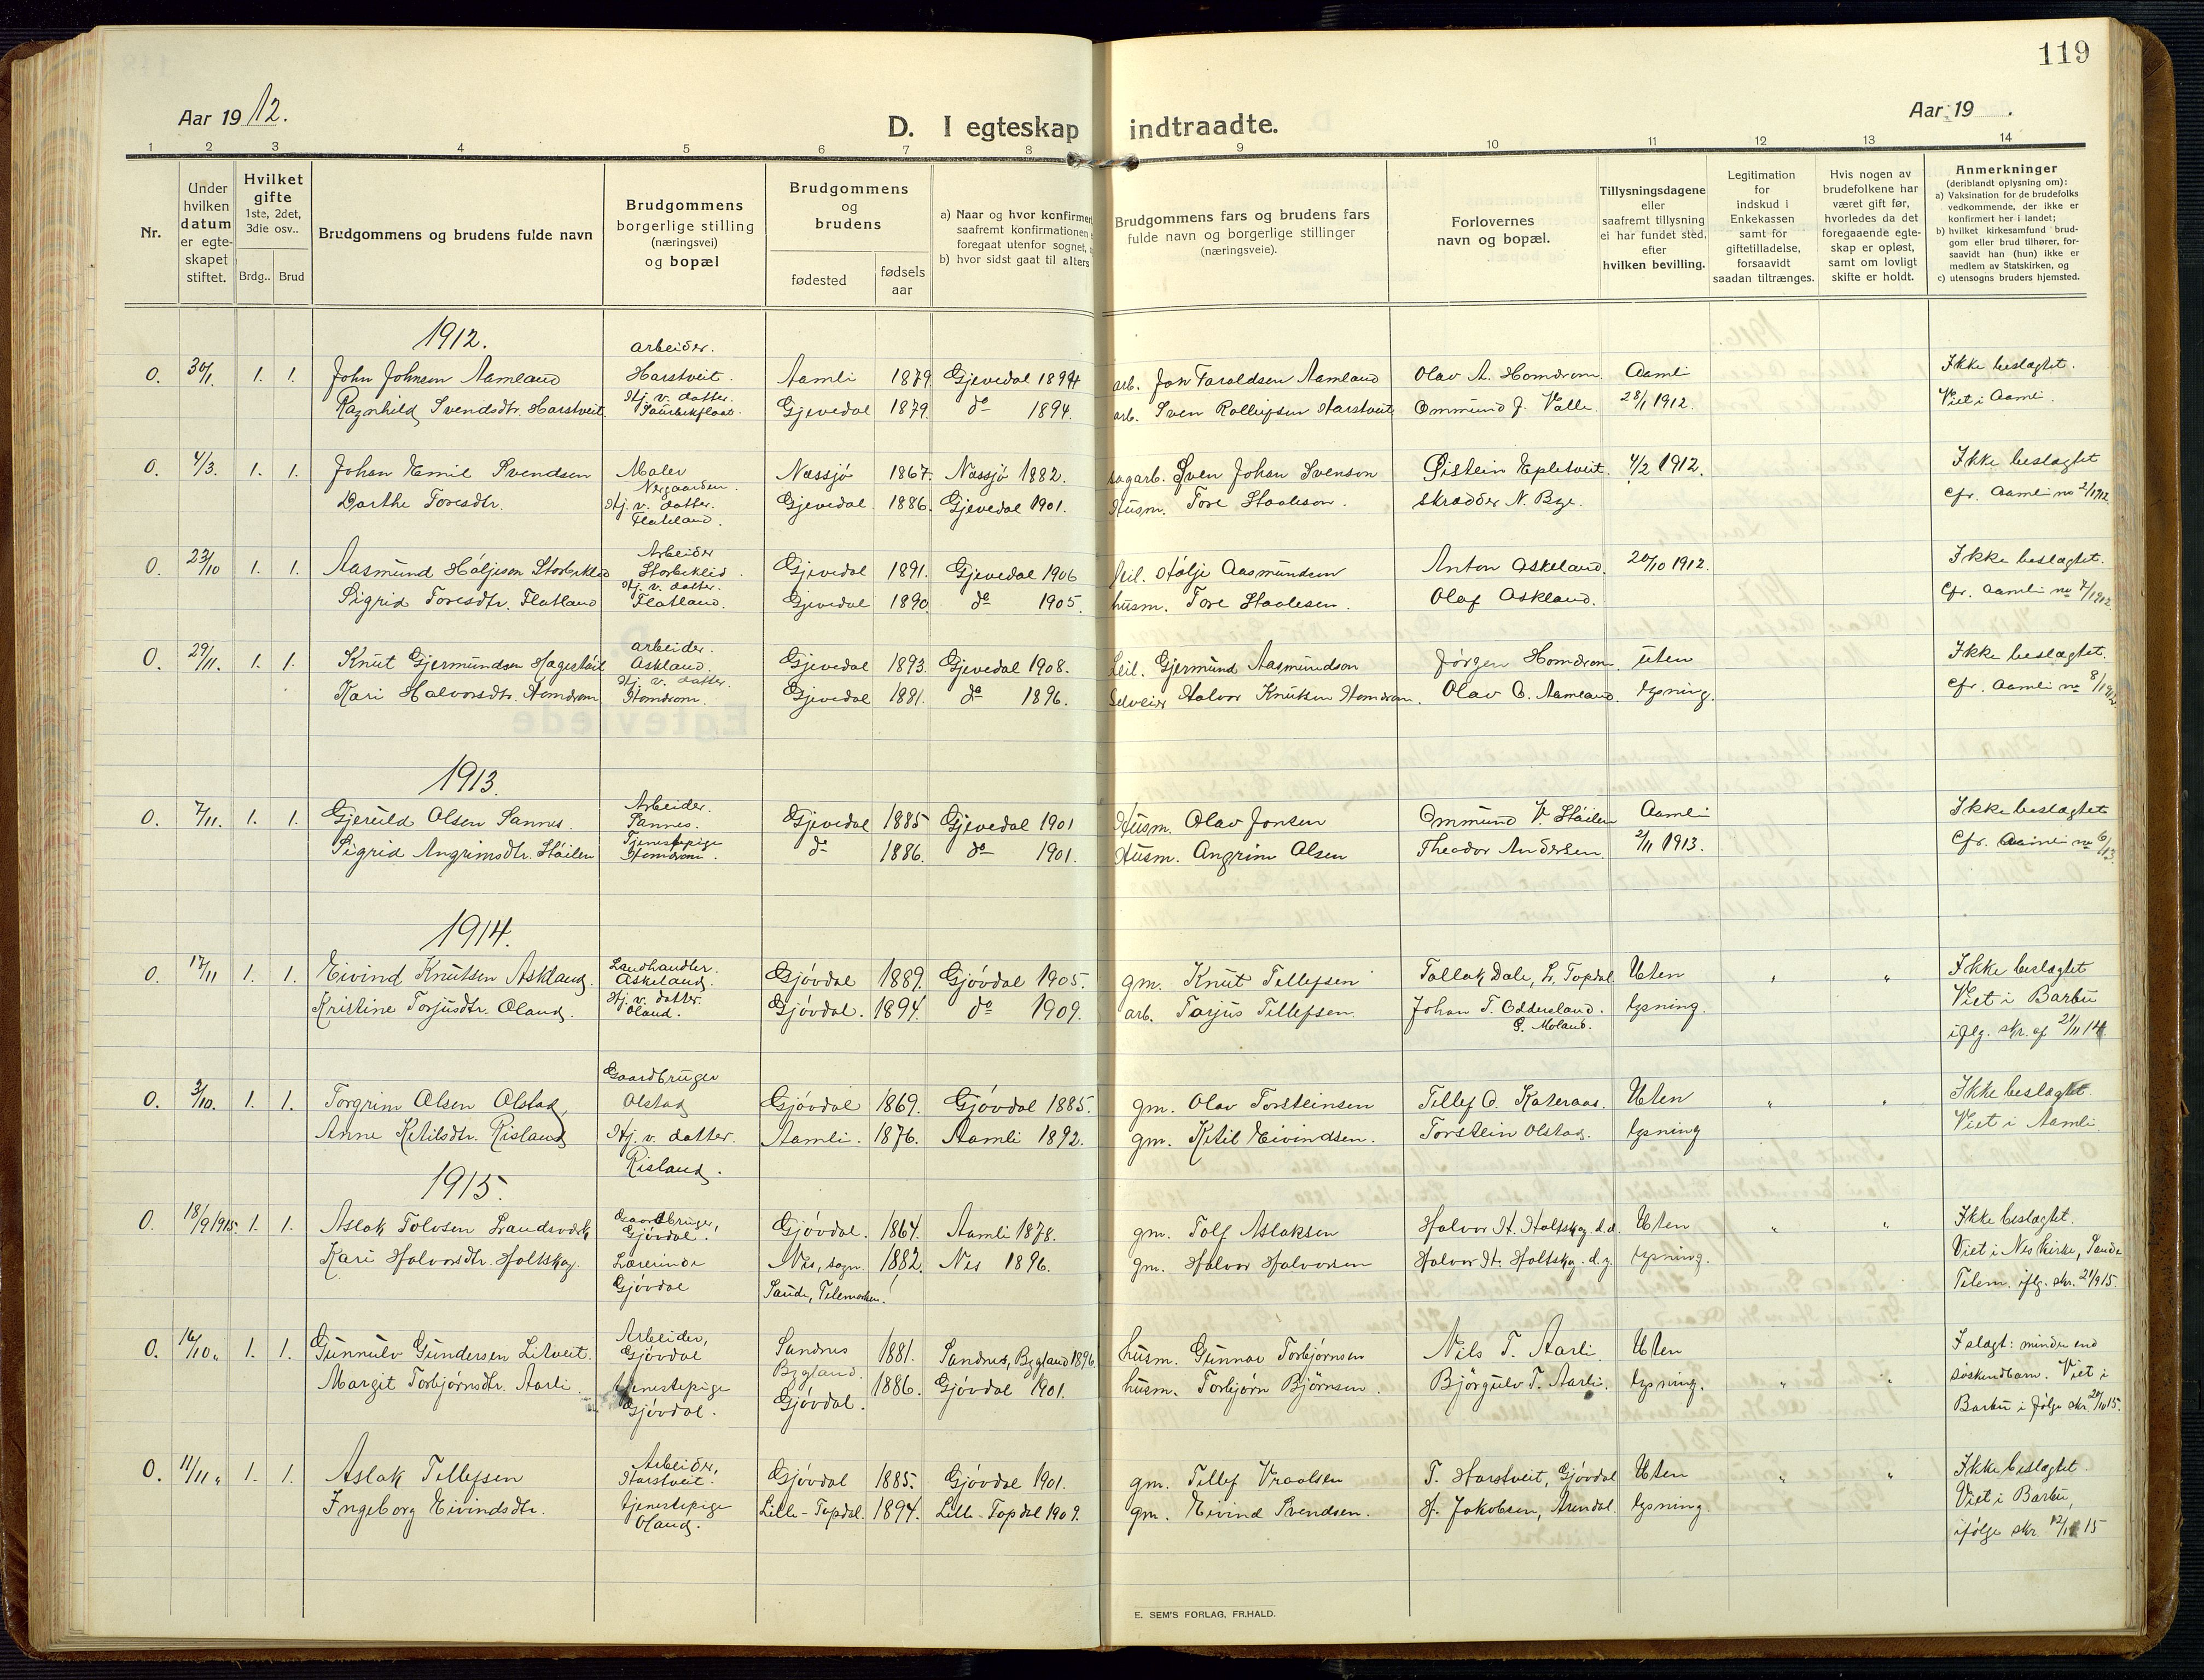 119
Aar 1912.
Aar 19 .
D. I egteskap indtraadte.
1 2 3 4 5 6 7 8 9 10 11 12 13 14
Nr.
Under hvilken datum er egte-skapet stiftet.
Hvilket gifte 1ste, 2det, 3die osv..
Brdg.. Brud
Brudgommens og brudens fulde navn
Brudgommens borgerlige stilling (næringsvei) og bopæl
Brudgommens og brudens
fødested
fødsels aar
a) Naar og hvor konfirmer
saafremt konfirmationen
foregaat utenfor sognet,
b) hvor sidst gaat til alters
Brudgommens fars og brudens fars
fulde navn og borgerlige stillinger
(næringsveie).
Forlovernes
navn og bopæl.
Tillysningsdagene
eller
saafremt tillysning
ei har fundet sted,
efter
hvilken bevilling.
Legitimation
for
indskud i
Enkekassen
samt for
giftetilladelse,
forsaavidt
saadan tiltrænges.
Hvis nogen av
brudefolkene har
været gift før,
hvorledes da det
foregaaende egte-
skap er opløst,
samt om lovligt
skifte er holdt.
Anmerkninger
(deriblandt oplysning om):
a) Vaksination for de brudefolks
vedkommende, der ikke er
konfirmert her i landet;
b) hvilket kirkesamfund brud-
gom eller brud tilhører, for-
saavidt han (hun) ikke er
medlem av Statskirken, og
c) utensogns bruders hjemsted.
1912.
Arbeider.
0. 30/1. 1. 1. John Johnsen Aamland Harstveit. Aamli 1879 Gjevedal 1894 arb. Jon Taraldsen Aamland Olav A. Homdrom Aamli Ikke beslagtet.
Ragnhild Svendsdtr. Harstveit Hj. v. datter. Gjevedal 1879. do 1894. arb. Sven Rollefsen Harstveit Ommund J. Valle 28/1 1912. Viet i Aamli.
0. 4/3. 1. 1. Johan Emil Svendsen Maler Nergaarden. Nassjö 1867. Nassjö 1882. sagarb. Sven Johan Svenson Øistein Epletveit. 4/2 1912. Ikke beslagtet
Barthe Toresdtr. Hj. v. datter. Flateland. Gjevedal 1886. Gjevedal 1901. Husm. Tore Staaleson. skrædder N. Bye. Cfr. Aamli no 2/1912.
0. 23/10 1. 1. Aasmund Höljeson Storbeklid Arbeider Storbeklid. Gjevedal 1891. Gjevedal 1906 leil. Hölje Aasmundsen Anton Askeland. 20/10 1912. Ikke beslagtet.
Sigrid Toresdtr. Flatland Hj. v. datter. Flatland. Gjevedal 1890. do 1905. husm. Tore Staalesen. Olaf Askland. Cfr. Aamli no 7/1912.
0. 29/11. 1. 1. Knut Gjermundsen Hagestveit Arbeider. Askland. Gjevedal 1893. Gjevedal 1908. Leil. Gjermund Aasmundson Jørgen Homdrom uten Ikke beslagtet.
Kari Halvorsdtr. Homdrom Hj. v. datter. Homdrom. Gjevedal 1881. do 1896. Selveier Halvor Knutsen Homdrom. Olav O. Aamland. lysning. Cfr. Aamli no 8/1912.
1913.
0. 7/11. 1. 1. Gjeruld Olsen Sannes. Arbeider. Sannes. Gjevedal 1885 Gjevedal 1901 Husm. Olav Jonsen Ommund V. Støilen Aamli Ikke beslagtet
Sigrid Angrimsdtr. Støilen Tjenestepige Homdrom. do 1886. do 1901. Husm. Angrim Olsen Theodor Andersen. 2/11 1913. Cfr. Aamli no 6/13.
1914.
0. 17/11 1. 1. Eivind Knutsen Askland. Landhandler. Askeland. Gjövdal 1889. Gjövdal 1905. gm. Knut Tellefsen Tallak Dale, L. Topdal Uten Ikke beslagtet
Kristine Torjusdtr. Oland. Hj. v. datter. Oland. Gjövdal. 1894. do 1909. arb. Torjus Tellefsen Johan T. Oddersland. Ö. Moland. lysning. Viet i Barbu
iflg. skr. af 21/11 14.
Gaardbruger
0. 3/10. 1. 1. Torgrim Olsen Olstad, Olstad Gjövdal 1869. Gjövdal 1885. gm. Olav Torsteinsen Tellef O. Kateraas. Uten Ikke beslagtet.
Anne Ketilsdtr. Risland Hj. v. datter. Aamli. 1876. Aamli 1892. gm. Ketil Eivindsen. Torstein Olstad. lysning Viet i Aamli
Risland.
1915.
0. 18/9 1915. 1. 1. Aslak Tolvsen Landsverk Gaardbruger, Gjövdal. Gjövdal. 1864. Aamli 1878. gm. Tolf Aslaksen Halvor H. Holtskog d.æ. Uten Ikke beslagtet.
Kari Halvorsdtr. Holtskog. Lærerinde Nes, sogn. 1882. Nes 1896. gm. Halvor Halvorsen Halvor H. Holtskog. d.y. lysning. Viet i Nes kirke, Saude
Gjövdal Saude, Telemarken. Telem. iflg. skr. 21/9 15.
0. 16/10 " 1. 1. Gunnulv Gundersen Litveit. Arbeider, Gjövdal Sandnes Bygland. 1881. Sandnes, Bygland 1896. husm. Gunnar Torbjørnsen Nils T. Aarli. Uten I slagt: mindre end
Margit Torbjørnsdtr. Aarli. tjenestepige Gjövdal. Gjövdal. 1886. Gjövdal 1901. husm. Torbjørn Björnsen. Björgulv T. Aarli. lysning. søskendbarn. Viet i
Barbu i følge skr. 20/10 15.
0. 11/11 " 1. 1. Aslak Tellefsen Arbeider, Harstveit. Gjövdal 1885. Gjövdal 1901. gm. Tellef Vraalsen T. Harstveit, Gjövdal Uten Ikke beslagtet.
Ingeborg Eivindsdtr. tjenestepige Oland. Lille-Topdal. 1894. Lille-Topdal 1909. gm. Eivind Svendsen. H. Jakobsen, Arendal. lysning. Viet i Barbu,
ifølge skr. 12/11 15
E. SEM'S FORLAG, FR.HALD.